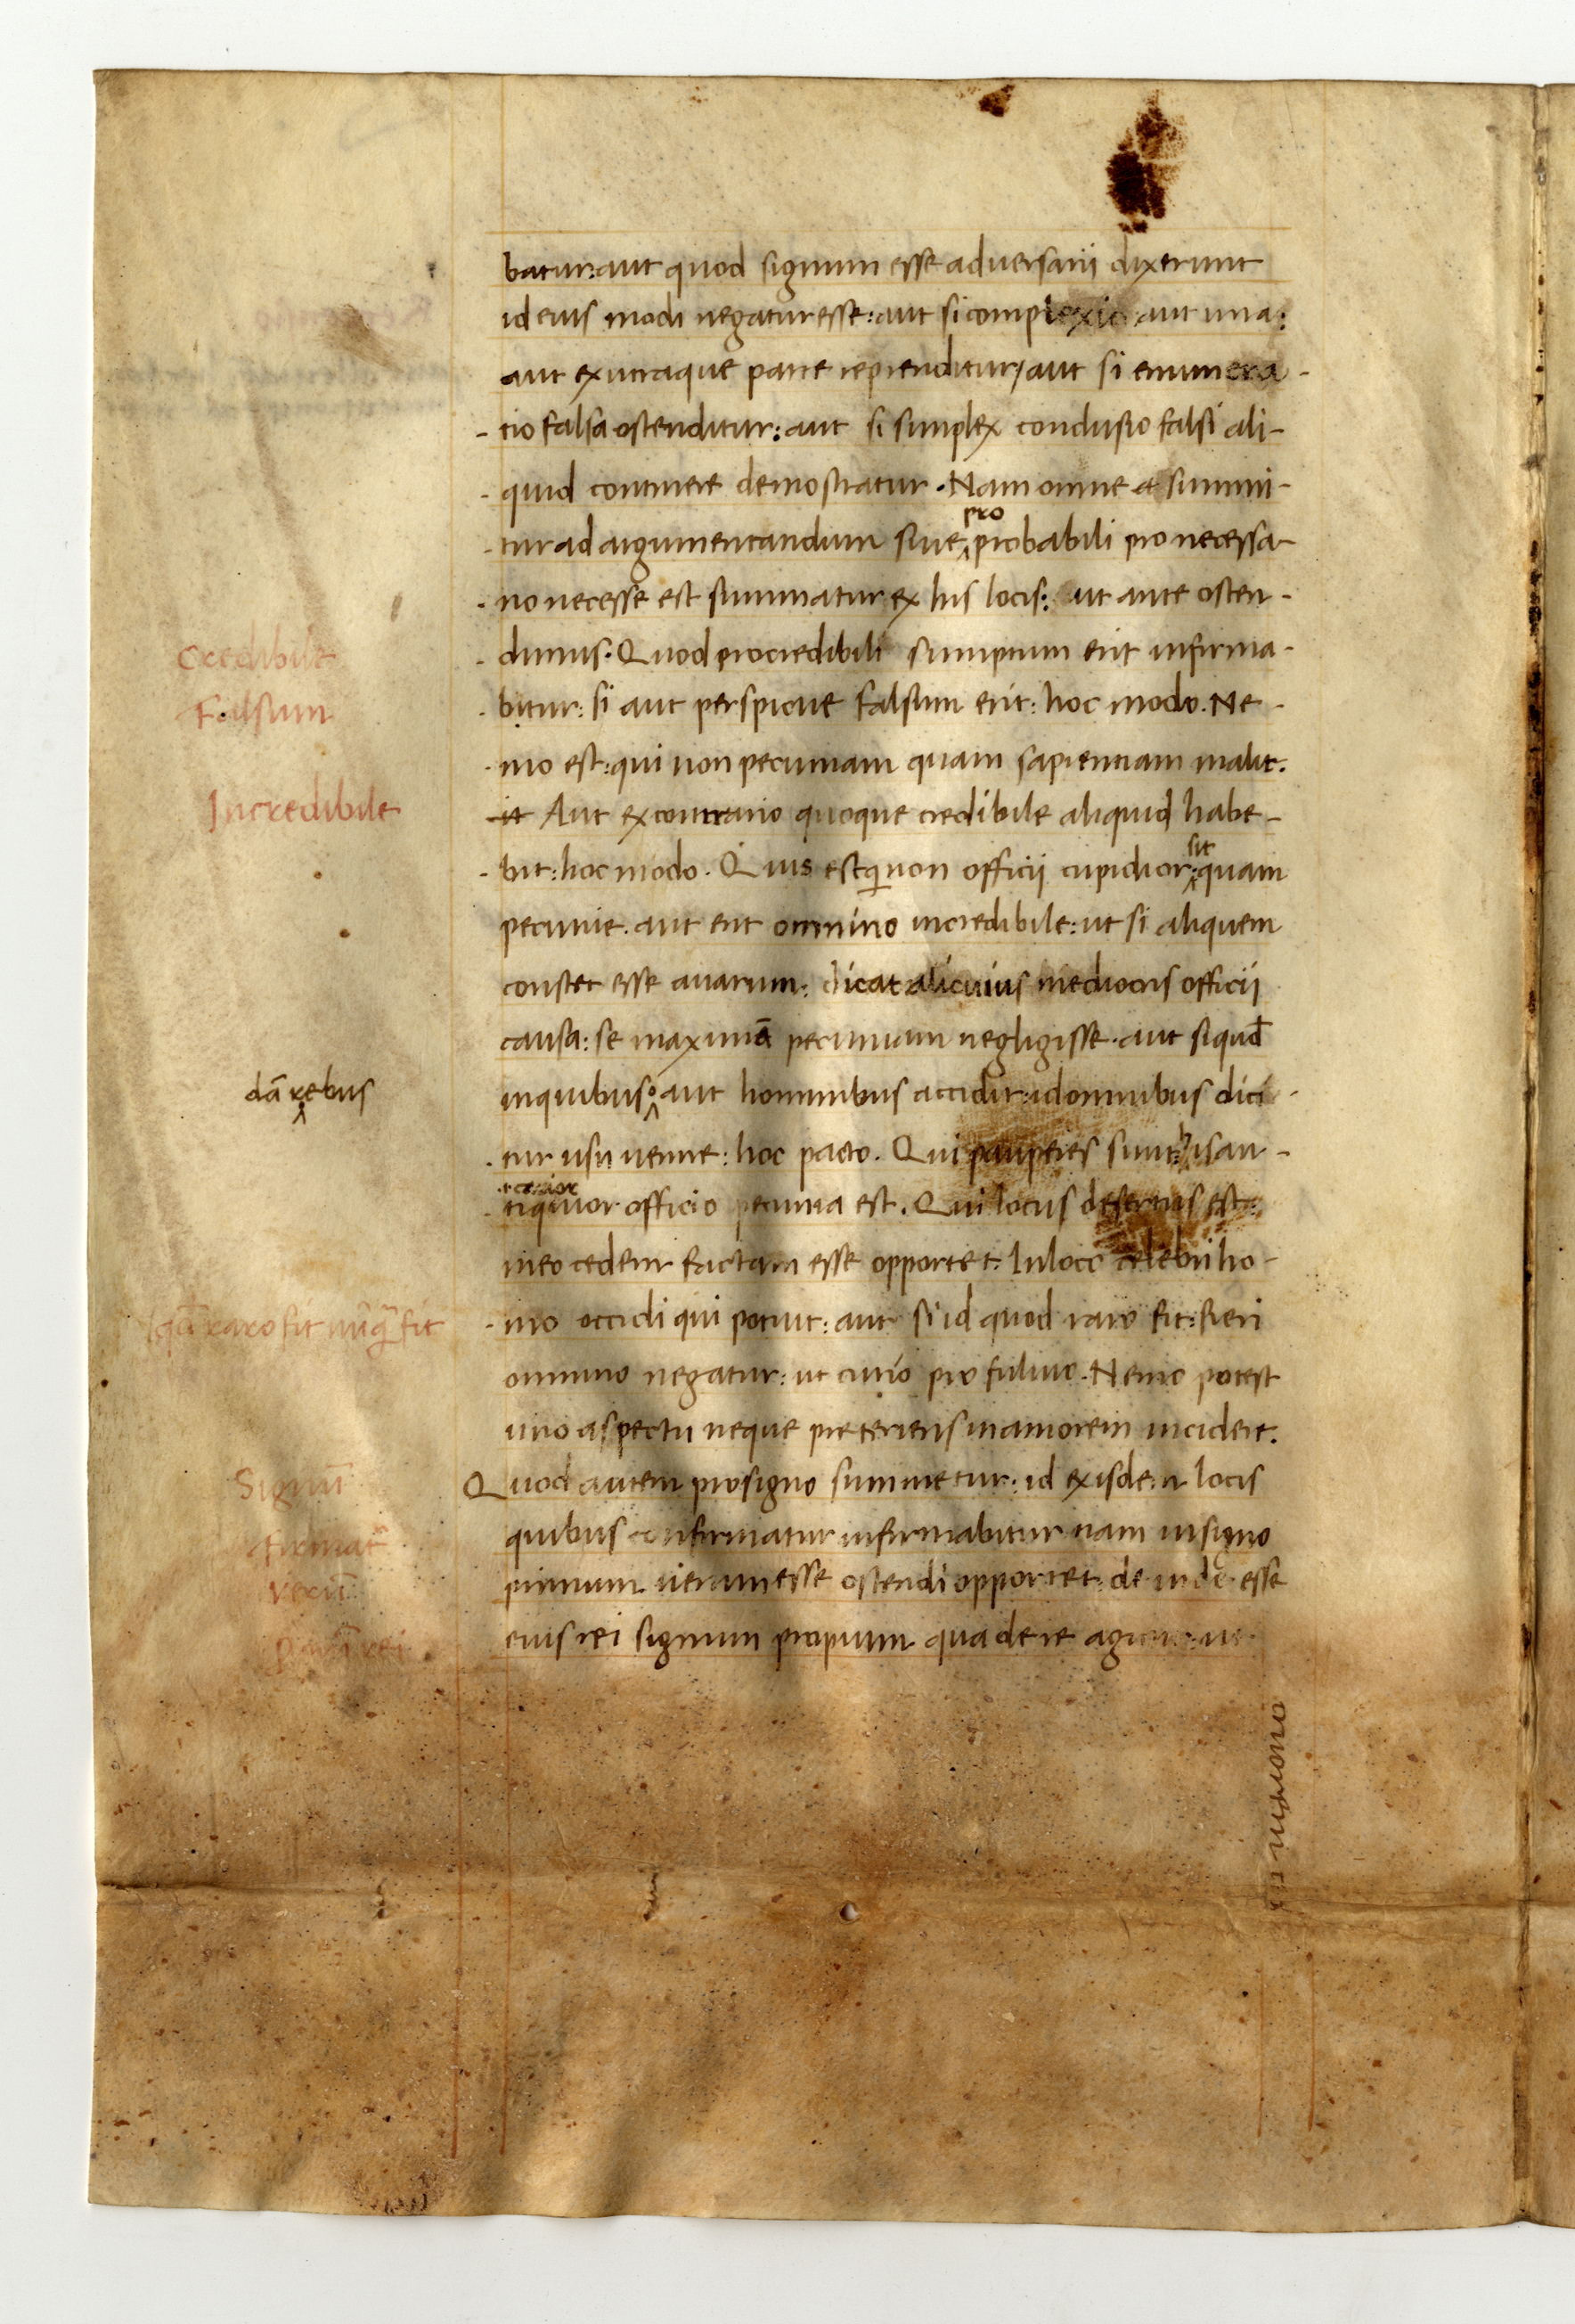 batur: aut quod signum esse adversarii dixerunt
id eius modi negatur esse: aut si complexio aut una:
aut ex utraque parte reprenditur/ aut si enumera-
-tio falsa ostenditur: aut si simplex conclusio falsi ali-
-quid continere demostratur. Nam omne summi-
pro
-tur ad argumentandum sive probabili pro necessa-
-rio necesse est summatur ex his locis: ut ante osten-
-dimus. Quod pro credibili sumptum erit infirma-
Credibile
-bitur: si aut perspicue falsum erit: hoc modo. Ne-
Falsum
-mo est: qui non pecuniam quam sapientiam malit.
Aut ex contrario quoque credibile aliquid habe-
Incredibile
sit
-bit: hoc modo. Quis est qui non officii cupidior: quam
pecunie. aut erit omnino incredibile: ut si aliquem
constet esse avarum: dicat alicuius mediocris officii
causa: se maximā pecuniam negligisse. aut si quid
inquibus aut hominibus accidit: id omnibus dici-
dā rebus
-tur usu venire: hoc pacto. Qui pauperes sunt: his an-
-tiquior officio pecunia est. Qui locus desertus est:
in eo cedem factam esse opportet. In loco celebri ho-
-mo occidi qui potuit: aut si id quod raro fit: fieri
raro fit nūq̄ fit
omnino negatur: ut curio pro fulvio. Nemo potest
uno aspectu neque preteriens in amorem incidere.
Quod autem pro signo summetur: id ex isdem locis
Signū
quibus confirmatur infirmabitur nam in signo
firmat
primum verum esse ostendi opportet: de inde esse
verū
eius rei signum proprium qua de re agitur: ut
rei